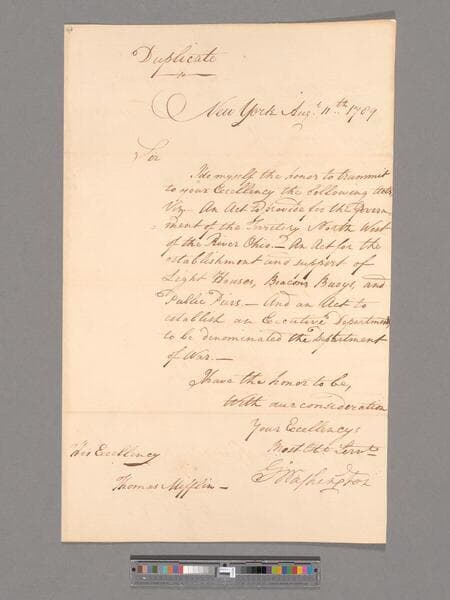 Duplicate
New York Augt. 11th. 1789
Sir
I do myself the honor to transmit
to your Excellency the following Acts
Viz. An Act to provide for the Govern-
-ment of the Territory North West
of the River Ohio.— An Act for the
establishment and support of
Light Houses, Beacons Buoys, and
Public Piers.— And an Act to
establish an Executive Department
to be denominated the Department
of War.—
I have the honor to be,
With due consideration
Your Excellency's
Most Obt. Servt.
Go. Washington
His Excellency
Thomas Mifflin—